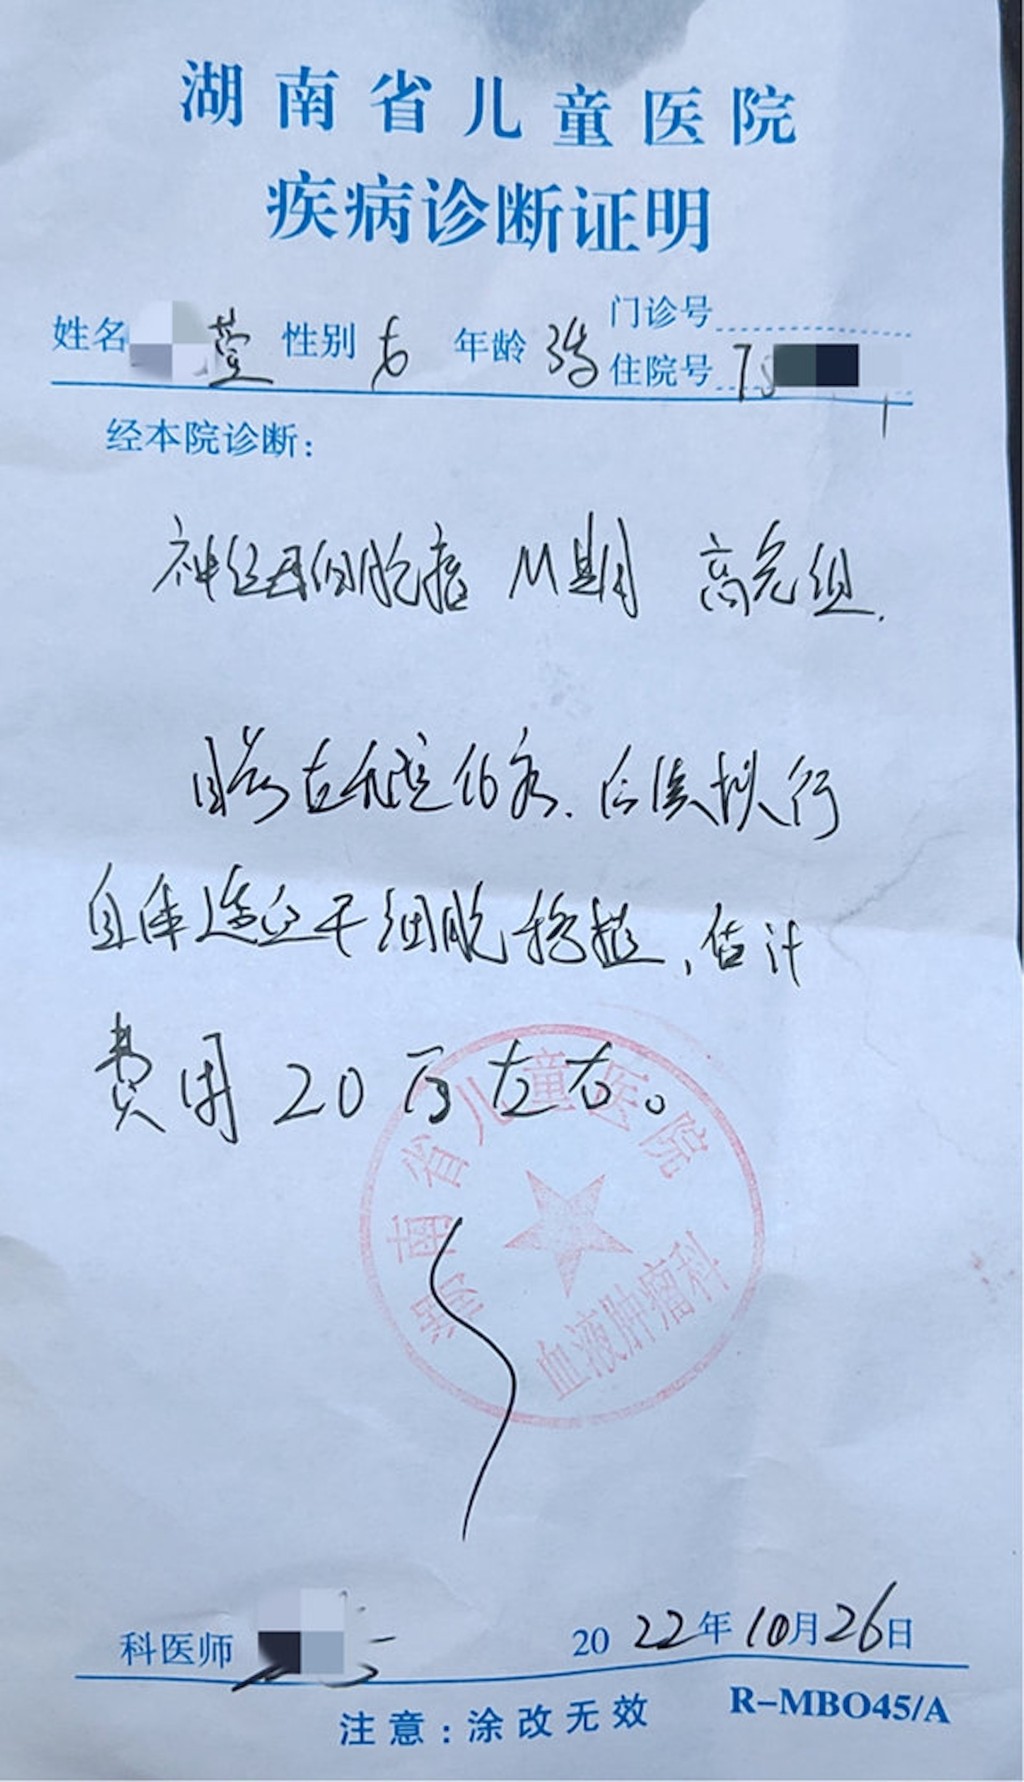 湖南省儿童医院
疾病诊断证明
姓名 萱 性别 女 年龄 3岁 门诊号
住院号 73
经本院诊断：
神经母细胞瘤 M期 高危组.
目前在我院化疗.后续拟行
自体造血干细胞移植,估计
费用20万左右。
湖南省儿童医院
血液肿瘤科
科医师 2022年10月26日
注意：涂改无效 R-MBO45/A